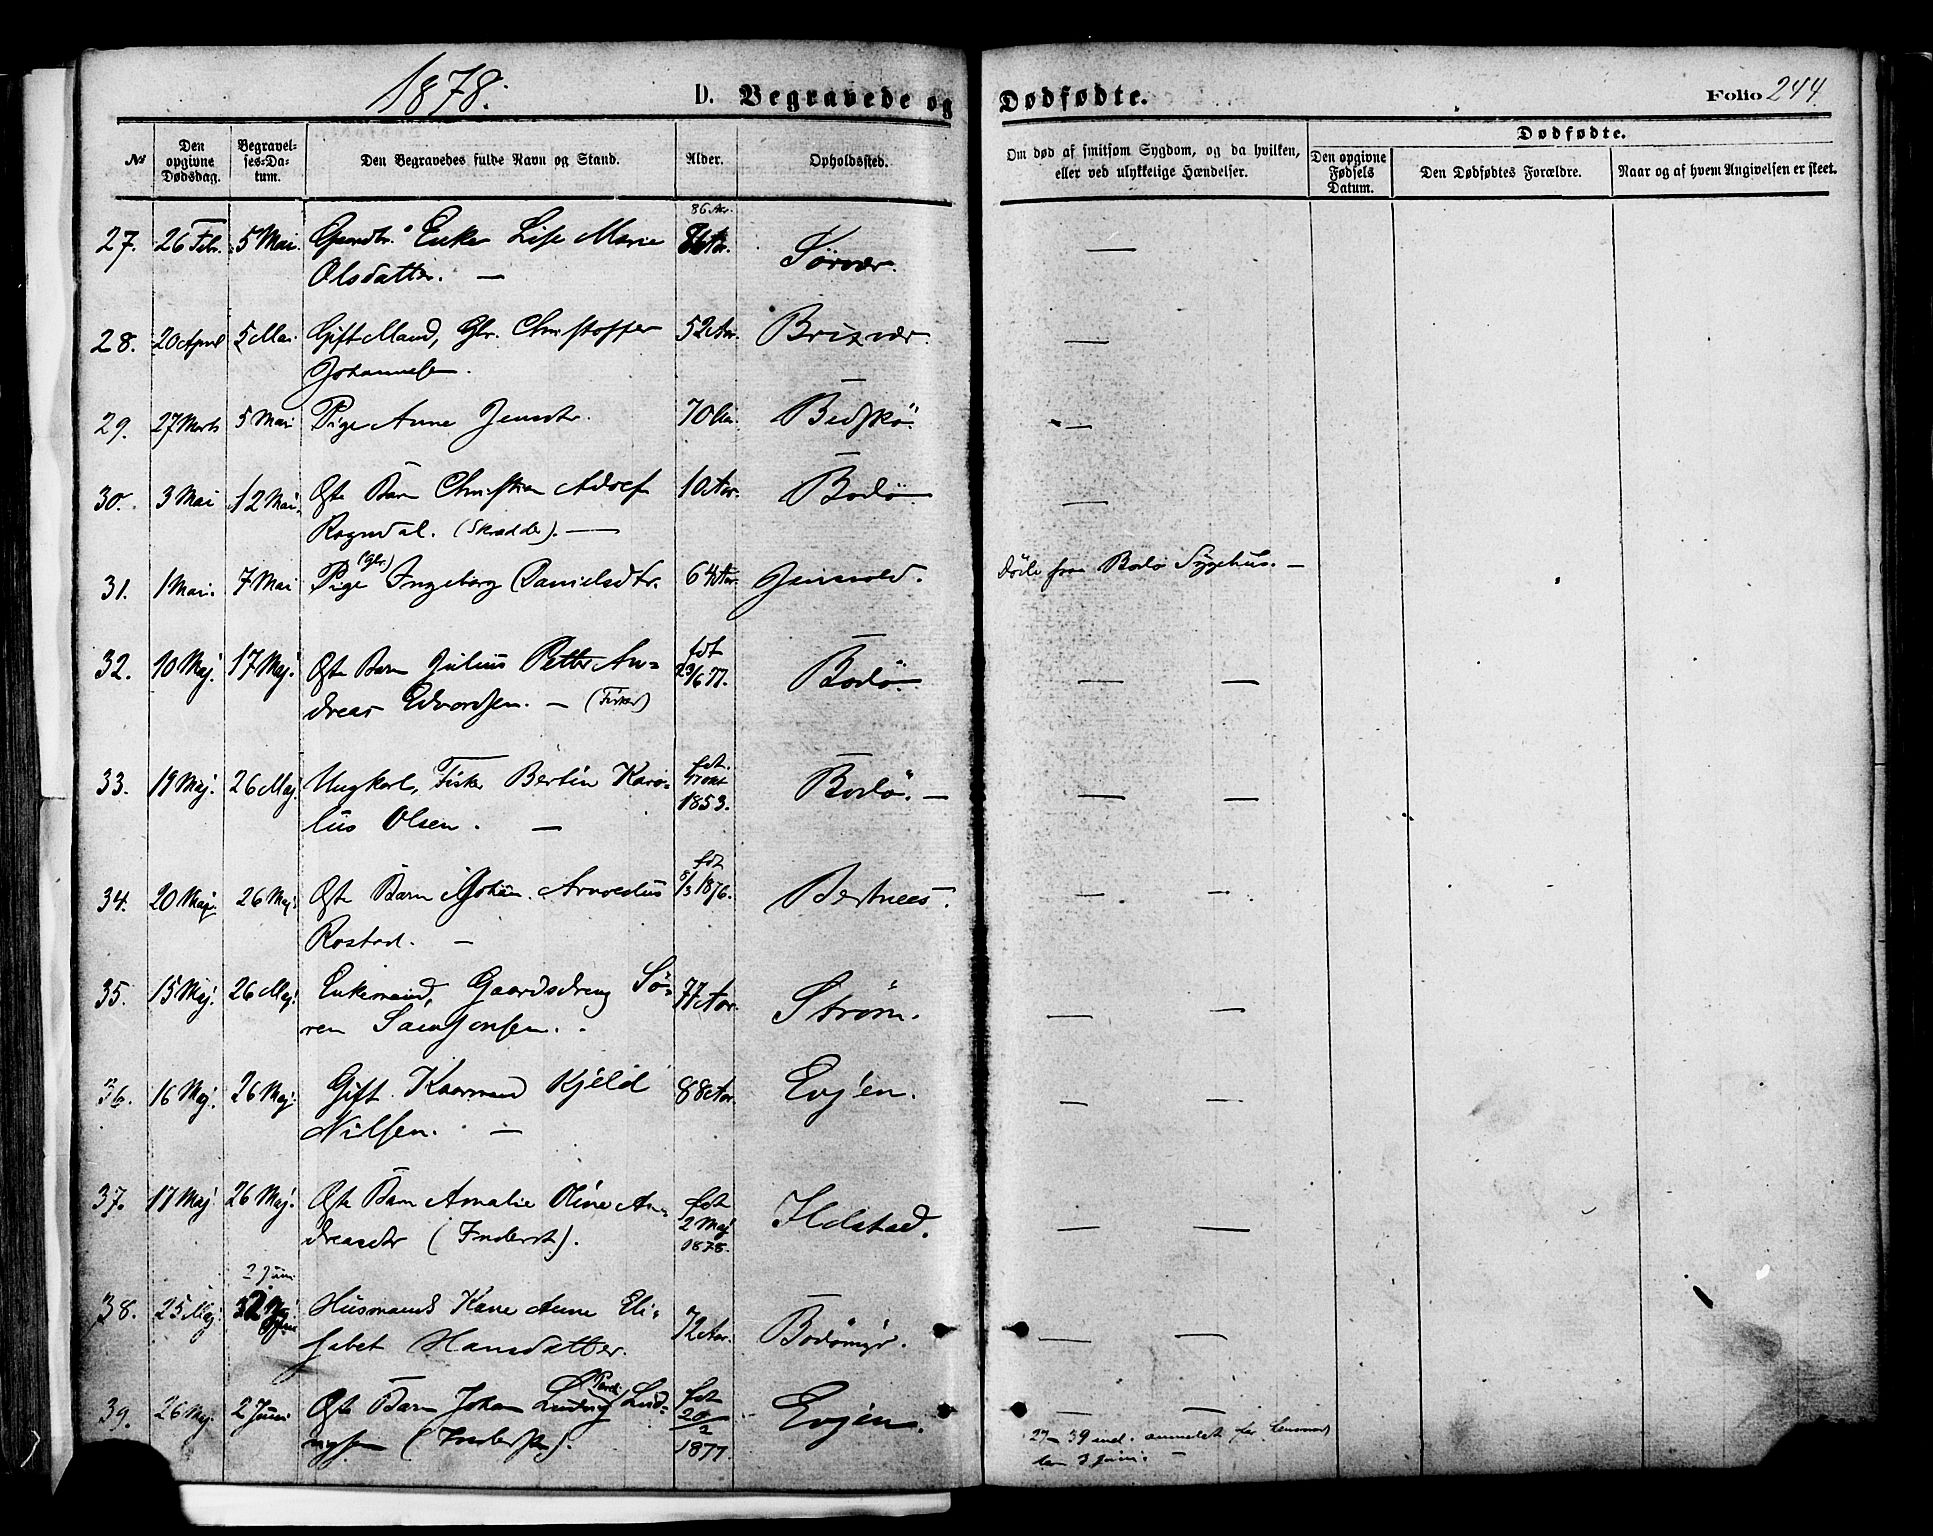 1878.
D. Begravede og Dødfødte.
Folio 244.
№
Den opgivne Dødsdag.
Begravelses-Datum.
Den Begravedes fulde Navn og Stand.
Alder.
Opholdssted.
Om død af smitsom Sygdom, og da hvilken, eller ved ulykkelige Hændelser.
Dødfødte.
Den opgivne Fødsels Datum.
Den Dødfødtes Forældre.
Naar og af hvem Angivelsen er skeet.
27. 26 Febr. 5 Mai Enke Lise Marie 86 Aar. Sørvær. —
Olsdatter. —
28. 20 April 5 Mai Gift Mand, Gbr. Christoffer 52 Aar. Brixvær. —
Johannesen.
29. 27 Marts 5 Mai Pige Anne Jensdtr. 70 Aar. —
30. 3 Mai 12 Mai. Ægte Barn Christian Adolf 10 Aar. Bodø —
Rogndal. (Skrædder). —
31. 1 Mai. 7 Mai Pige (Gbr.) Ingeborg Danielsdtr. 64 Aar. Jensvold. Døde paa Bodø Sygehus. —
32. 10 Maj. 17 Maj. Ægte Barn Julius Petter An- fdt 23/6 77. Bodø. — —
dreas Edvardsen. — (Fisker)
33. 19 Maj. 26 Maj. Ungkarl, Fisker Bertin Karo- fdt. 17 Okt 1853. Bodø. — — —
lus Olsen. —
34. 20 Maj. 26 Maj. Ægte Barn Johan Arnoldus fdt 8/3 1876. Bertnæs. — —
Rostad. —
35. 15 Maj. 26 Maj. Enkemand, Gaardsdreng Sø- 77 Aar. Strøm. — —
ren Samsonsen.
36. 16 Maj. 26 Maj. Gift Kaarmand Kjeld 88 Aar. Evjen. — —
Nilsen. —
37. 17 Maj. 26 Maj. Ægte Barn Amalie Oline An- fdt 2 Maj 1878. Ildstad. — —
dreasdtr (Inderst).
2 Juni
38. 25 Maj. Husmands Kone Anne Eli- 72 Aar. Bodømyr. — —
sabet Hansdatter.
39. 26 Maj. 2 Juni Ægte Barn Johan Ludvig Lud- fdt 20/2 1877. Evjen. — —
vigsen (Inderst).
27–39 incl. anmeldt for Lensmand
den 3 Juni. —